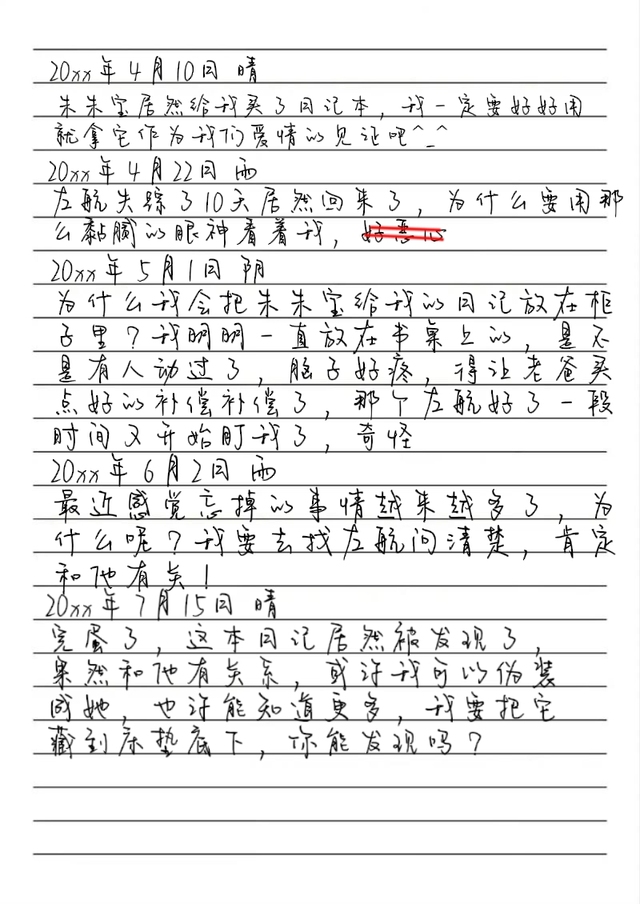 20xx年4月10日 晴
朱朱宝居然给我买了日记本，我一定要好好用
就拿它作为我们爱情的见证吧^_^
20xx年4月22日 雨
左航失踪了10天居然回来了，为什么要用那
么黏腻的眼神看着我，好恶心
20xx年5月1日 阴
为什么我会把朱朱宝给我的日记放在柜
子里？我明明一直放在书桌上的，是不
是有人动过了，脑子好疼，得让老爸买
点好的补偿补偿了，那个左航好了一段
时间又开始盯我了，奇怪
20xx年6月2日 雨
最近感觉忘掉的事情越来越多了，为
什么呢？我要去找左航问清楚，肯定
和他有关！
20xx年7月15日 晴
完蛋了，这本日记居然被发现了，
果然和他有关系，或许我可以伪装
成她，也许能知道更多，我要把它
藏到床垫底下，你能发现吗？